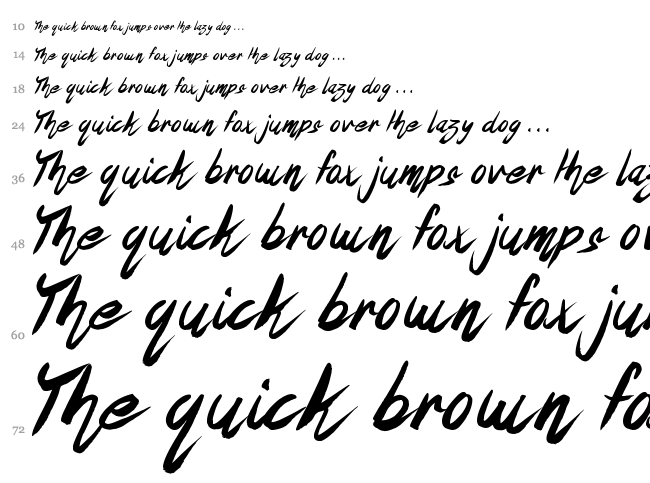 10 The quick brown fox jumps over the lazy dog ...
14 The quick brown fox jumps over the lazy dog ...
18 The quick brown fox jumps over the lazy dog ...
24 The quick brown fox jumps over the lazy dog ...
36 The quick brown fox jumps over the laz
48 The quick brown fox jumps ov
60 The quick brown fox ju
72 The quick brown fo